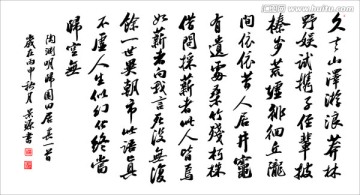 久去山澤游浪莽林
野娛試攜子侄輩披
榛步荒墟徘徊丘隴
間依依昔人居井竈
有遺處桑竹殘朽株
借問採薪者此人皆焉
如薪者向我言死沒無復
餘一世異朝市此語真
不虛人生似幻化終當
歸空無
陶淵明歸園田居其一首
歲在丙申秋月景源書